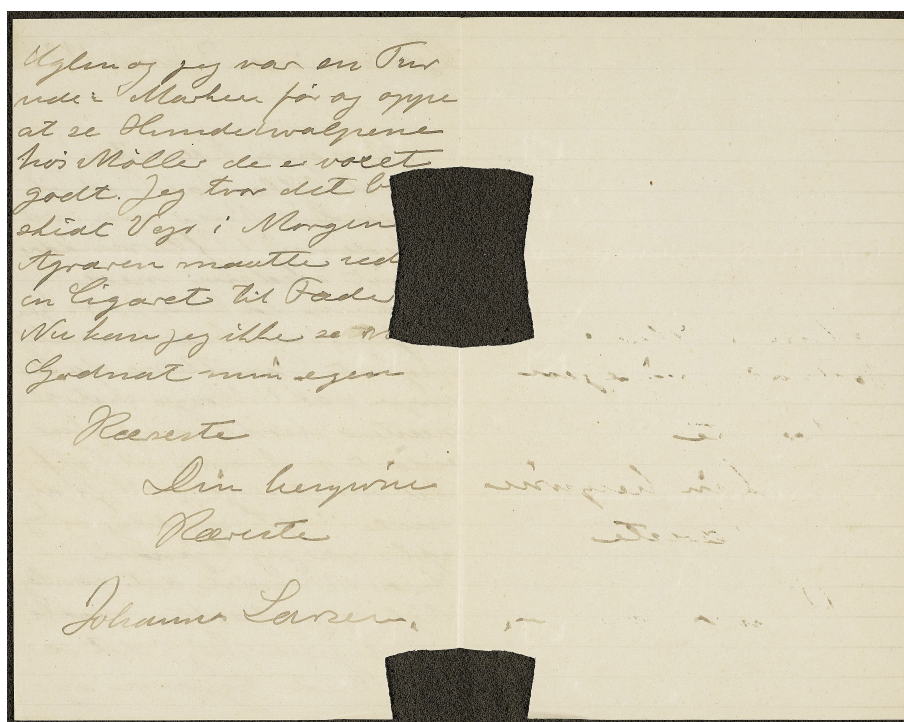 Uglen og jeg var en Tur
ude i Marken før og oppe
at se Hundehvalpene
hos Møller de e voxet
godt. Jeg tror det b
skidt Vejr i Morgen
Agraren maatte ned
en Cigaret til Fader
Nu kan jeg ikke se
Godnat min egen
Kæreste
Din hengivne
Kæreste
Johannes Larsen.